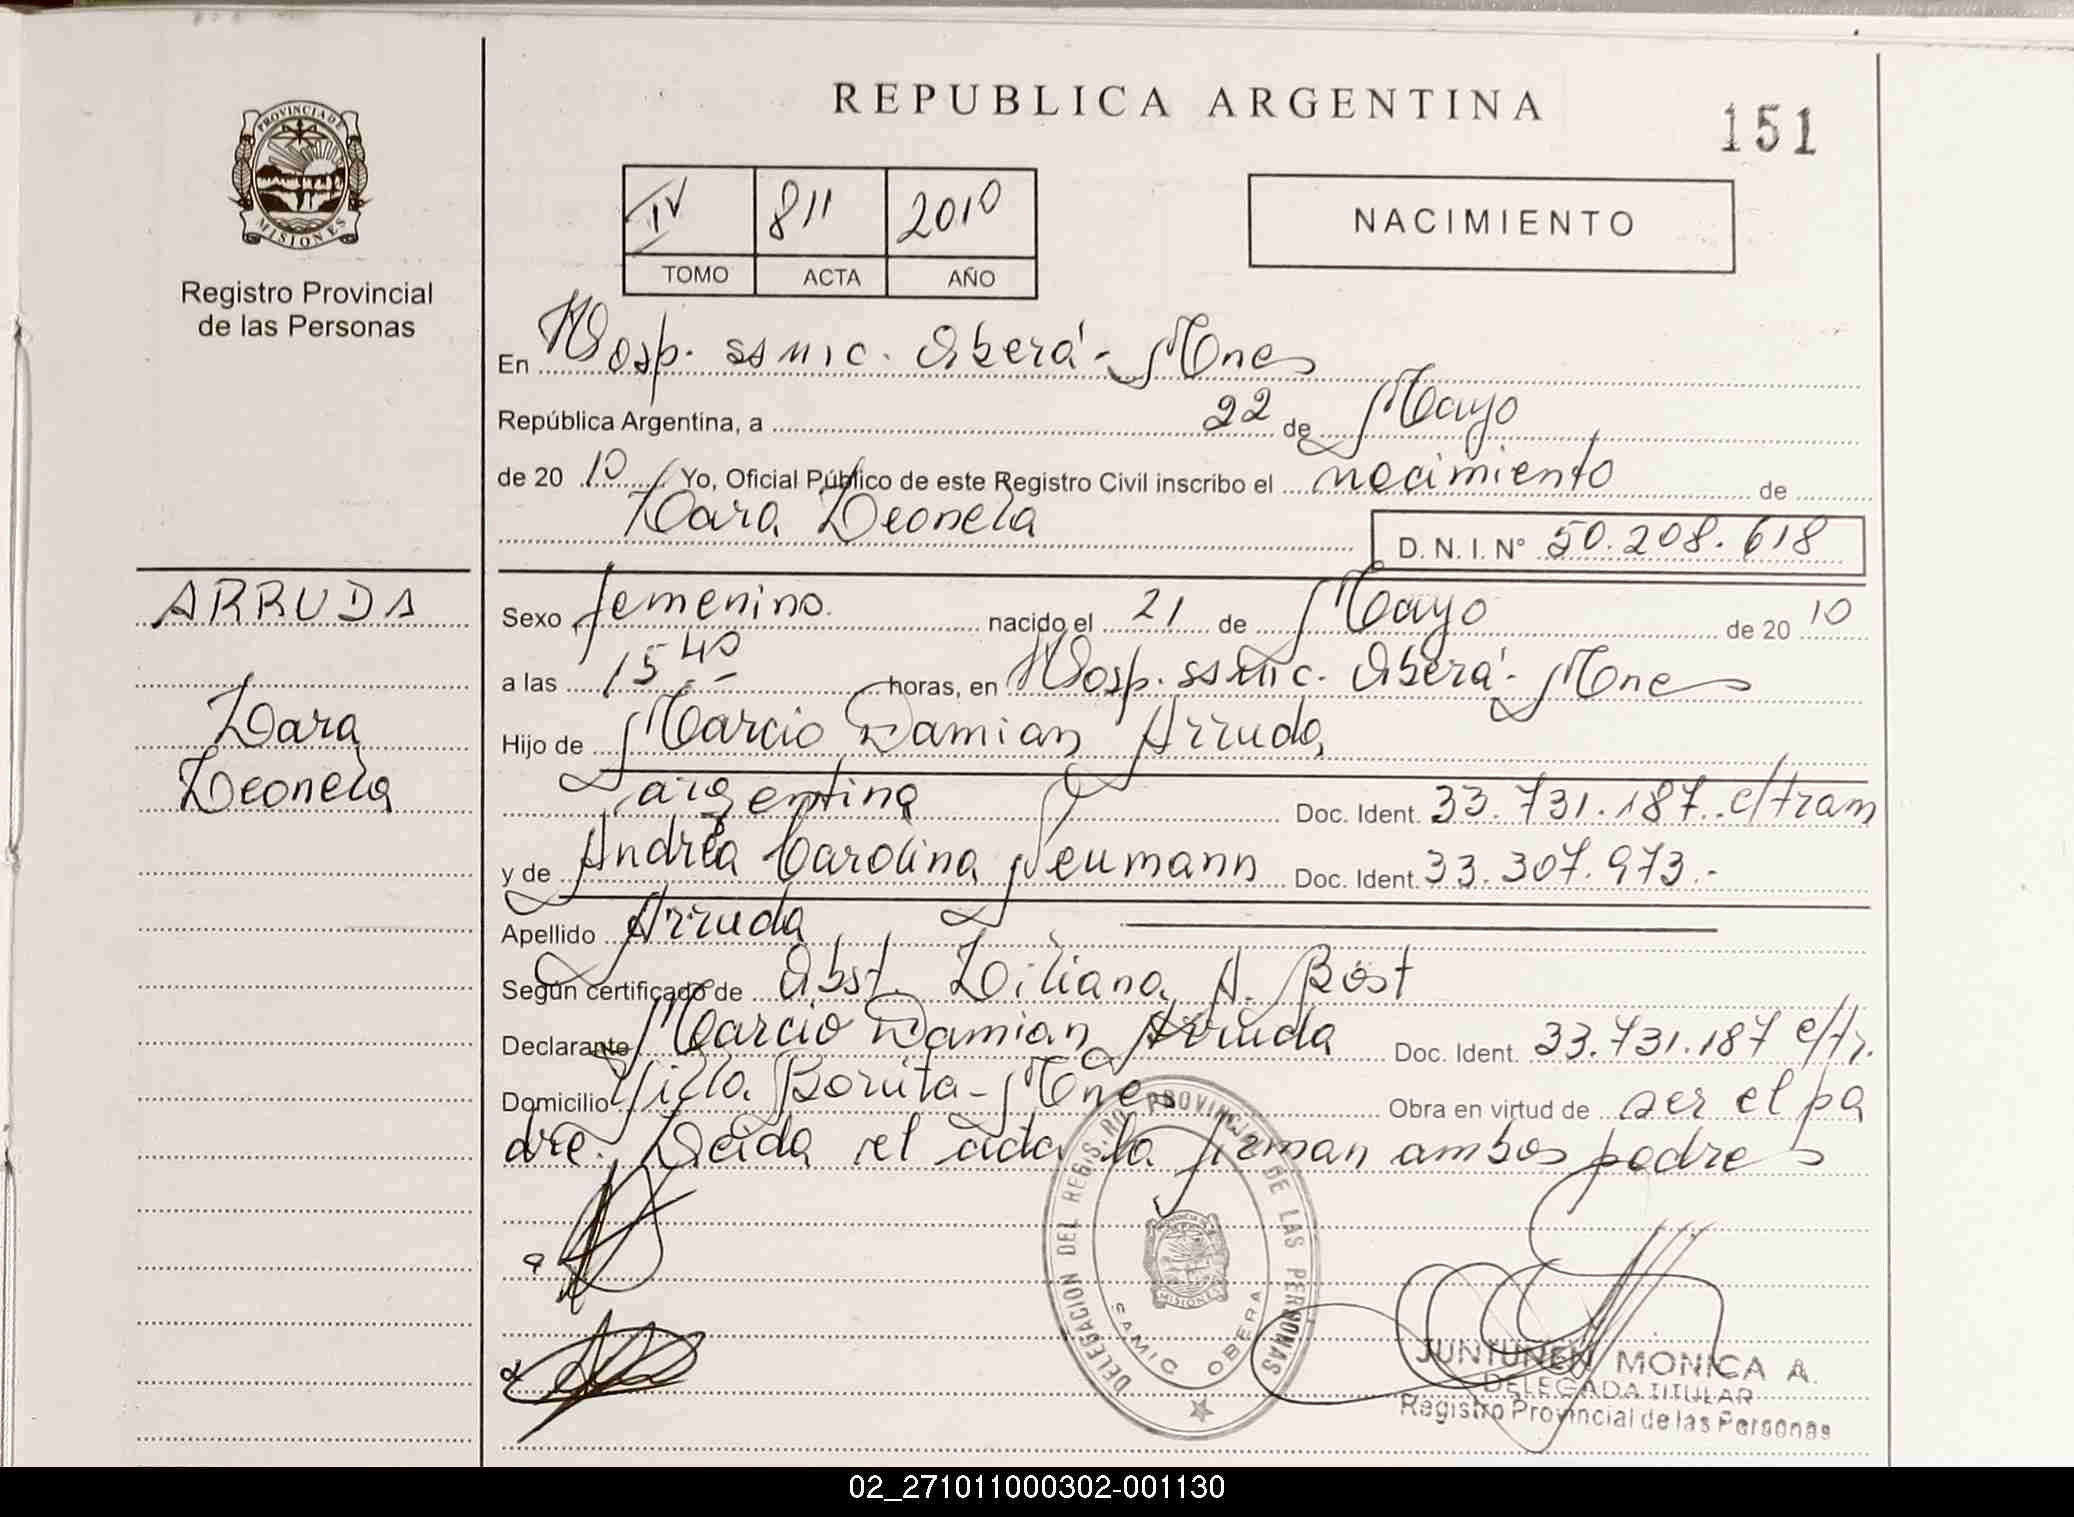 PROVINCIA DE
MISIONES
Registro Provincial
de las Personas
ARRUDA
Lara
Leonela
REPUBLICA ARGENTINA
151
IV 811 2010
TOMO ACTA AÑO
NACIMIENTO
En Hosp. SSMIC. Oberá - Mnes
República Argentina, a 22 de Mayo
de 20 10 Yo, Oficial Público de este Registro Civil inscribo el nacimiento de
Lara Leonela
D. N. I. N° 50.208.618
Sexo femenino nacido el 21 de Mayo de 20 10
a las 15 40 horas, en Hosp. SSMIC. Oberá - Mnes
Hijo de Marcio Damian Arruda
argentina Doc. Ident. 33.731.187.. e/tram
y de Andrea Carolina Neumann Doc. Ident. 33.307.973.-
Apellido Arruda
Según certificado de Obst. Liliana A. Bost
Declarante Marcio Damian Arruda Doc. Ident. 33.731.187 e/tr.
Domicilio Villa Bonita - Mnes Obra en virtud de ser el pa
dre. Leida el acta la firman ambos padres
DELEGACION DEL REGIS. PROVINCIAL DE LAS PERSONAS
MISIONES
SAMIC OBERA
JUNTUNEN MONICA A.
DELEGADA TITULAR
Registro Provincial de las Personas
02_271011000302-001130